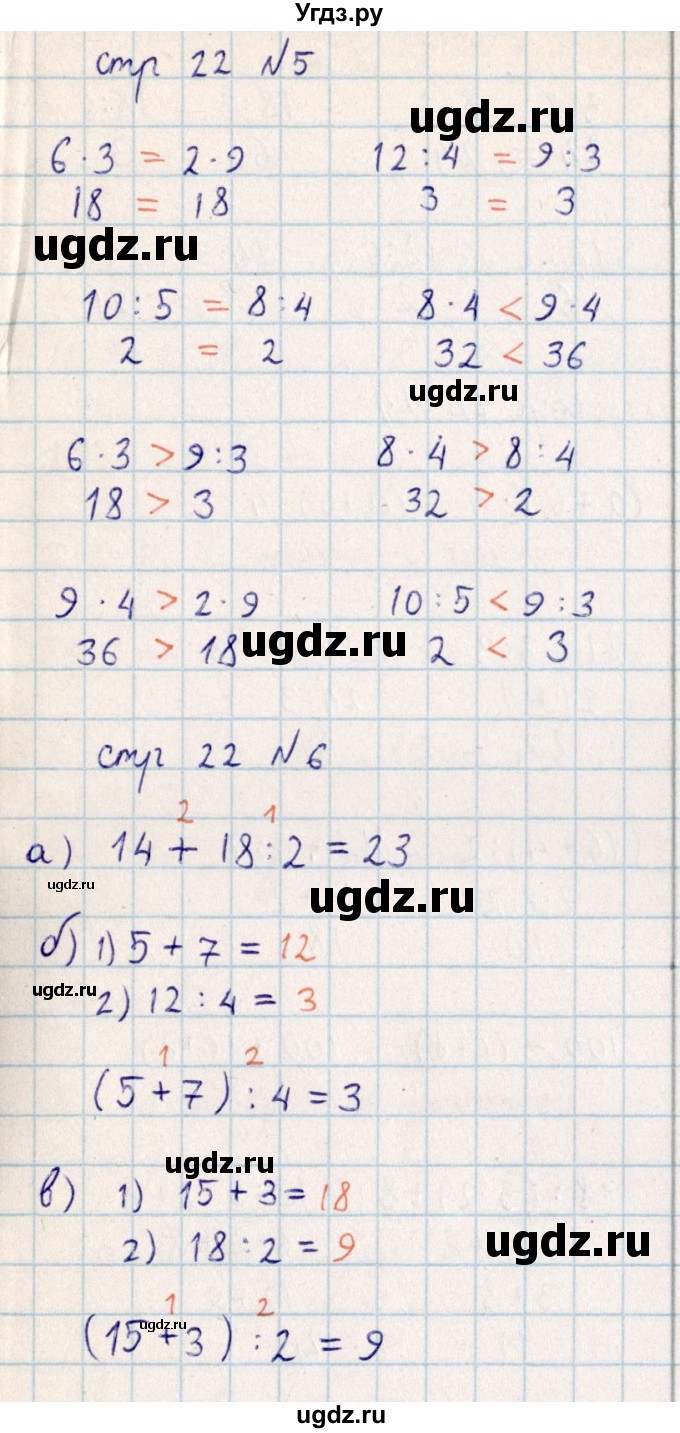 Угдз.ру
стр 22 №5
ugdz.ru
6·3 = 2·9 12:4 = 9:3
18 = 18 3 = 3
ugdz.ru
10:5 = 8:4 8·4 < 9·4
2 = 2 32 < 36
ugdz.ru
6·3 > 9:3 8·4 > 8:4
18 > 3 32 > 2
9·4 > 2·9 10:5 < 9:3
36 > 18 2 < 3
ugdz.ru
стр 22 №6
2 1
а) 14 + 18:2 = 23
ugdz.ru
ugdz.ru
б) 1) 5 + 7 = 12
ugdz.ru
2) 12 : 4 = 3
1 2
(5+7) : 4 = 3
ugdz.ru
в) 1) 15 + 3 = 18
2) 18 : 2 = 9
ugdz.ru
1 2
ugdz.ru
(15+3) : 2 = 9
ugdz.ru